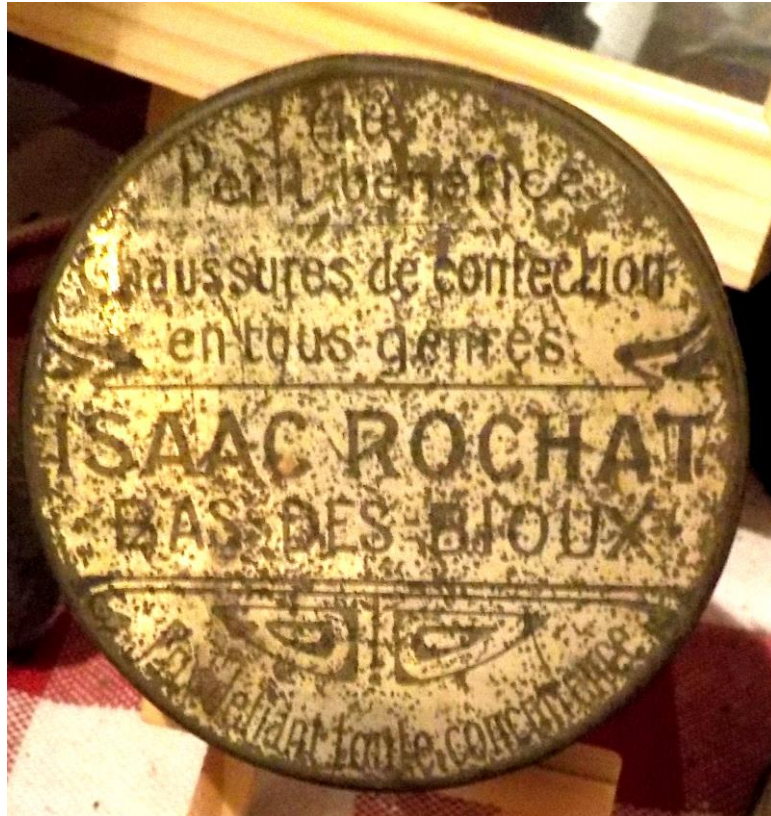 Au
Petit bénéfice
Chaussures de confection
en tous genres
ISAAC ROCHAT
BAS-DES-BIOUX
défiant toute concurrence